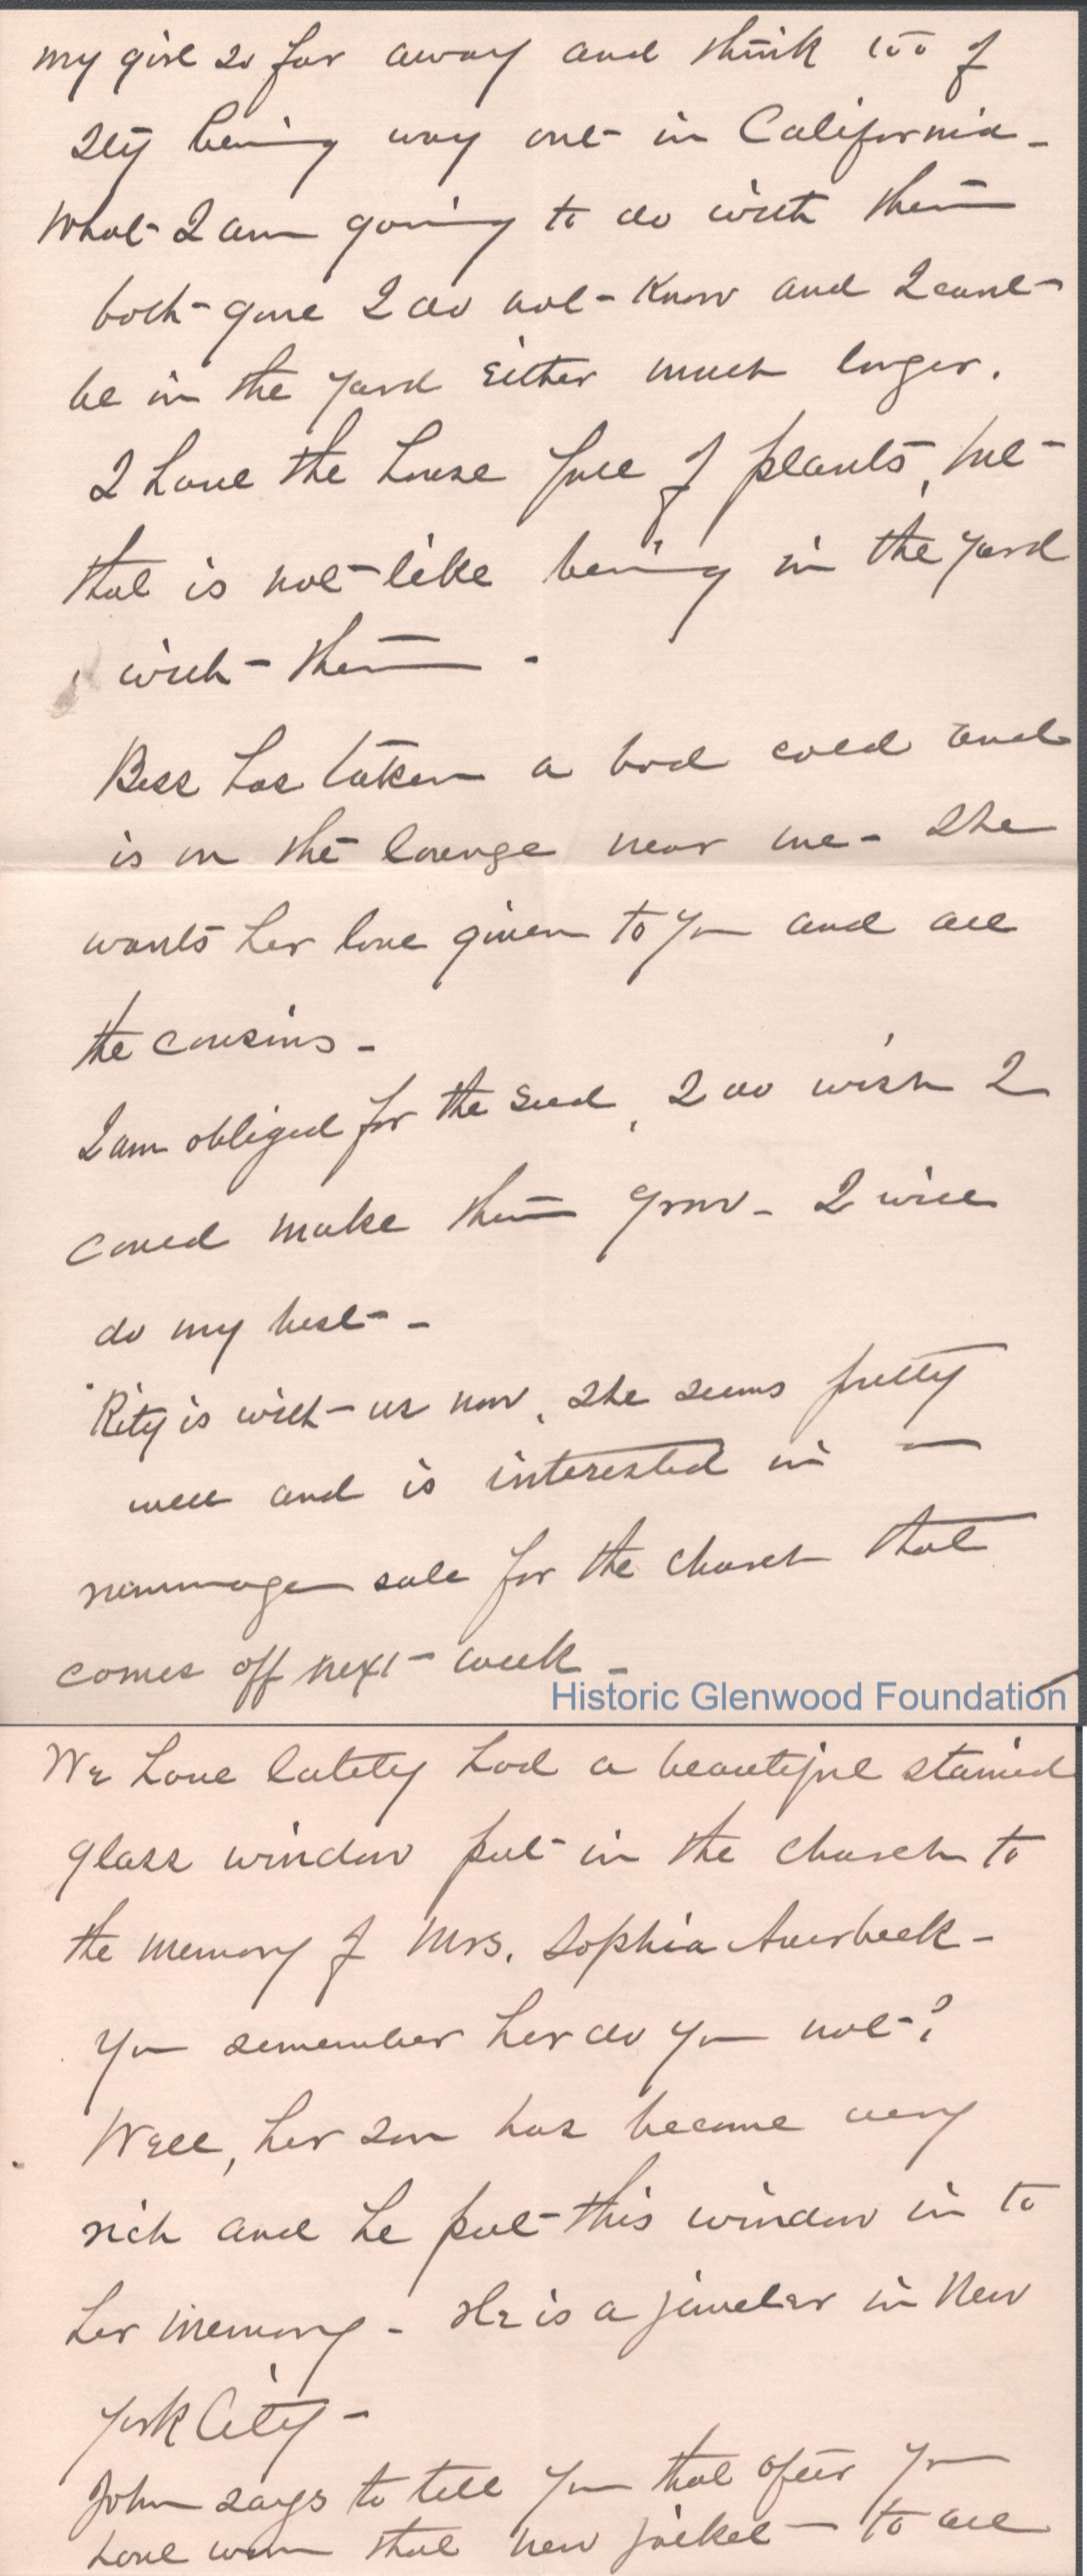 my girl so far away and think too of
being way out in California -
What I am going to do with them
both gone I do not know and I cant
be in the yard either much longer.
I have the house full of plants, but
that is not like being in the yard
with them -
Bess has taken a bad cold and
is on the lounge near me - She
wants her love given to you and all
the cousins -
I am obliged for the seed, I do wish I
could make them grow - I will
do my best -
Rity is with us now, She seems pretty
well and is interested in
rummage sale for the church that
comes off next week -
Historic Glenwood Foundation
We have lately had a beautiful stained
glass window put in the church to
the memory of Mrs. Sophia Auerbeck -
You remember her do you not?
Well, her son has become very
rich and he put this window in to
her memory - He is a jeweler in New
York City -
John says to tell you that after you
have worn that new jacket to all